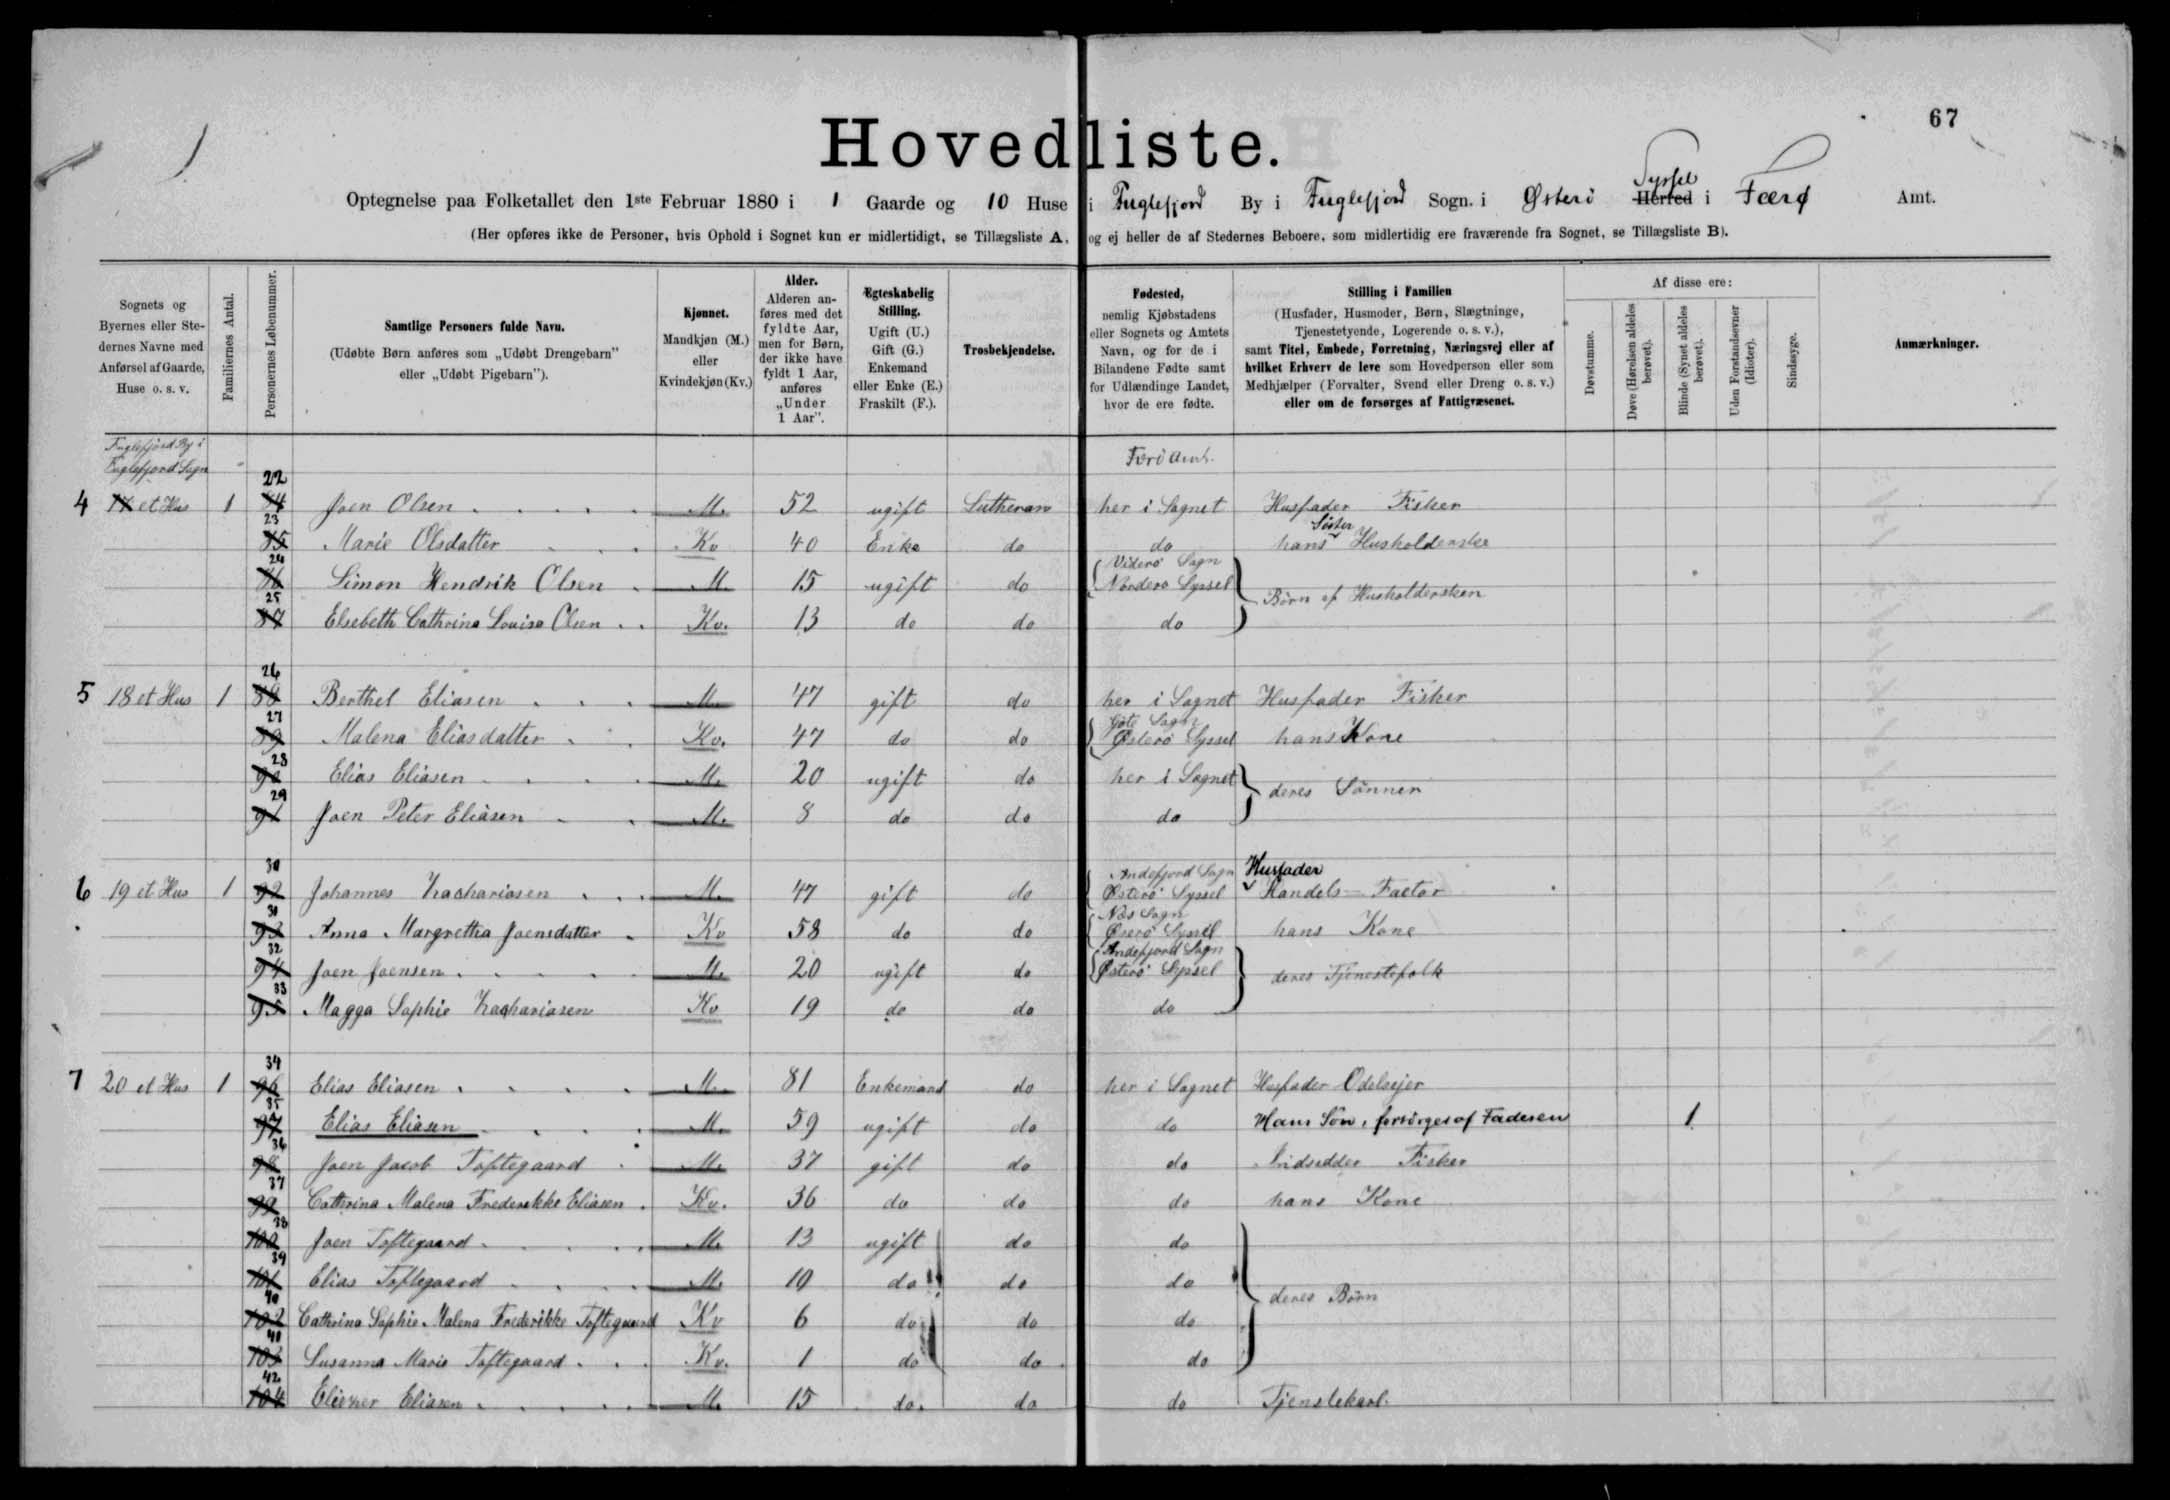 67
Hovedliste.
Optegnelse paa Folketallet den 1ste Februar 1880 i 1 Gaarde og 10 Huse i Fuglefjord By i Fuglefjord Sogn. i Østerö Syssel Herred i Færø Amt.
(Her opføres ikke de Personer, hvis Ophold i Sognet kun er midlertidigt, se Tillægsliste A, og ej heller de af Stedernes Beboere, som midlertidig ere fraværende fra Sognet, se Tillægsliste B).
Sognets og Byernes eller Stedernes Navne med Anførsel af Gaarde, Huse o. s. v.
Familiernes Antal.
Personernes Løbenummer.
Samtlige Personers fulde Navn.
(Udøbte Børn anføres som „Udøbt Drengebarn" eller „Udøbt Pigebarn").
Kjønnet.
Mandkjøn (M.) eller Kvindekjøn (Kv.)
Alder.
Alderen anføres med det fyldte Aar, men for Børn, der ikke have fyldt 1 Aar, anføres „Under 1 Aar".
Ægteskabelig Stilling.
Ugift (U.) Gift (G.) Enkemand eller Enke (E.) Fraskilt (F.).
Trosbekjendelse.
Fødested,
nemlig Kjøbstadens eller Sognets og Amtets Navn, og for de i Bilandene Fødte samt for Udlændinge Landet, hvor de ere fødte.
Stilling i Familien
(Husfader, Husmoder, Børn, Slægtninge, Tjenestetyende, Logerende o. s. v.),
samt Titel, Embede, Forretning, Næringsvej eller af hvilket Erhverv de leve som Hovedperson eller som Medhjælper (Forvalter, Svend eller Dreng o. s. v.) eller om de forsørges af Fattigvæsenet.
Af disse ere:
Døvstumme.
Døve (Hørelsen aldeles berøvet).
Blinde (Synet aldeles berøvet).
Uden Forstandsevner (Idioter).
Sindssyge.
Anmærkninger.
Fuglefjord By i
Fuglefjord Sogn Færö Amt.
4 17 et Hus 1 22 84 Joen Olsen M. 52 ugift Lutheran her i Sognet Husfader Fisker
23 85 Marie Olsdatter Kv 40 Enke do do hans Söster Husholderske
24 86 Simon Hendrik Olsen M. 15 ugift do Viderö Sogn Norderö Syssel Börn af Husholdersken
25 87 Elsebeth Cathrina Louisa Olsen Kv. 13 do do do
5 18 et Hus 1 26 88 Berthel Eliasen M. 47 gift do her i Sognet Husfader Fisker
27 89 Malena Eliasdatter Kv. 47 do do Göte Sogn Østerö Syssel hans Kone
28 90 Elias Eliasen M. 20 ugift do her i Sognet deres Sönner
29 91 Joen Peter Eliasen M. 8 do do do
6 19 et Hus 1 30 92 Johannes Zachariasen M. 47 gift do Andefjord Sogn Østerö Syssel Husfader Handels-Factor
31 93 Anna Margretha Joensdatter Kv 58 do do Nes Sogn Øserö Syssel hans Kone
32 94 Joen Joensen M. 20 ugift do Andefjord Sogn Østerö Syssel deres Tjenestefolk
33 95 Magga Sophie Zachariasen Kv 19 do do do
7 20 et Hus 1 34 96 Elias Eliasen M. 81 Enkemand do her i Sognet Husfader Odelsejer
35 97 Elias Eliasen M. 59 ugift do do Hans Sön, forsörges af Faderen 1
36 98 Joen Jacob Toftegaard M. 37 gift do do Indsidder Fisker
37 99 Cathrina Malena Frederikke Eliasen Kv. 36 do do do hans Kone
38 100 Joen Toftegaard M. 13 ugift do do
39 101 Elias Toftegaard M. 10 do do do deres Börn
40 102 Cathrina Sophie Malena Frederikke Toftegaard Kv 6 do do do
41 103 Susanna Marie Toftegaard Kv. 1 do do do
42 104 Eliasen M. 15 do. do do Tjenstekarl.